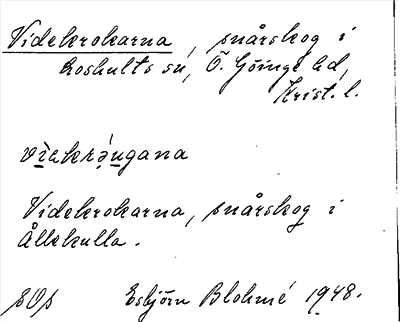 Videkrokarna, snårskog i
Loshults sn, Ö. Göinge hd,
Krist. l.
Videkrokarna, snårskog i
Ållekulla.
Esbjörn Blohmé 1948.